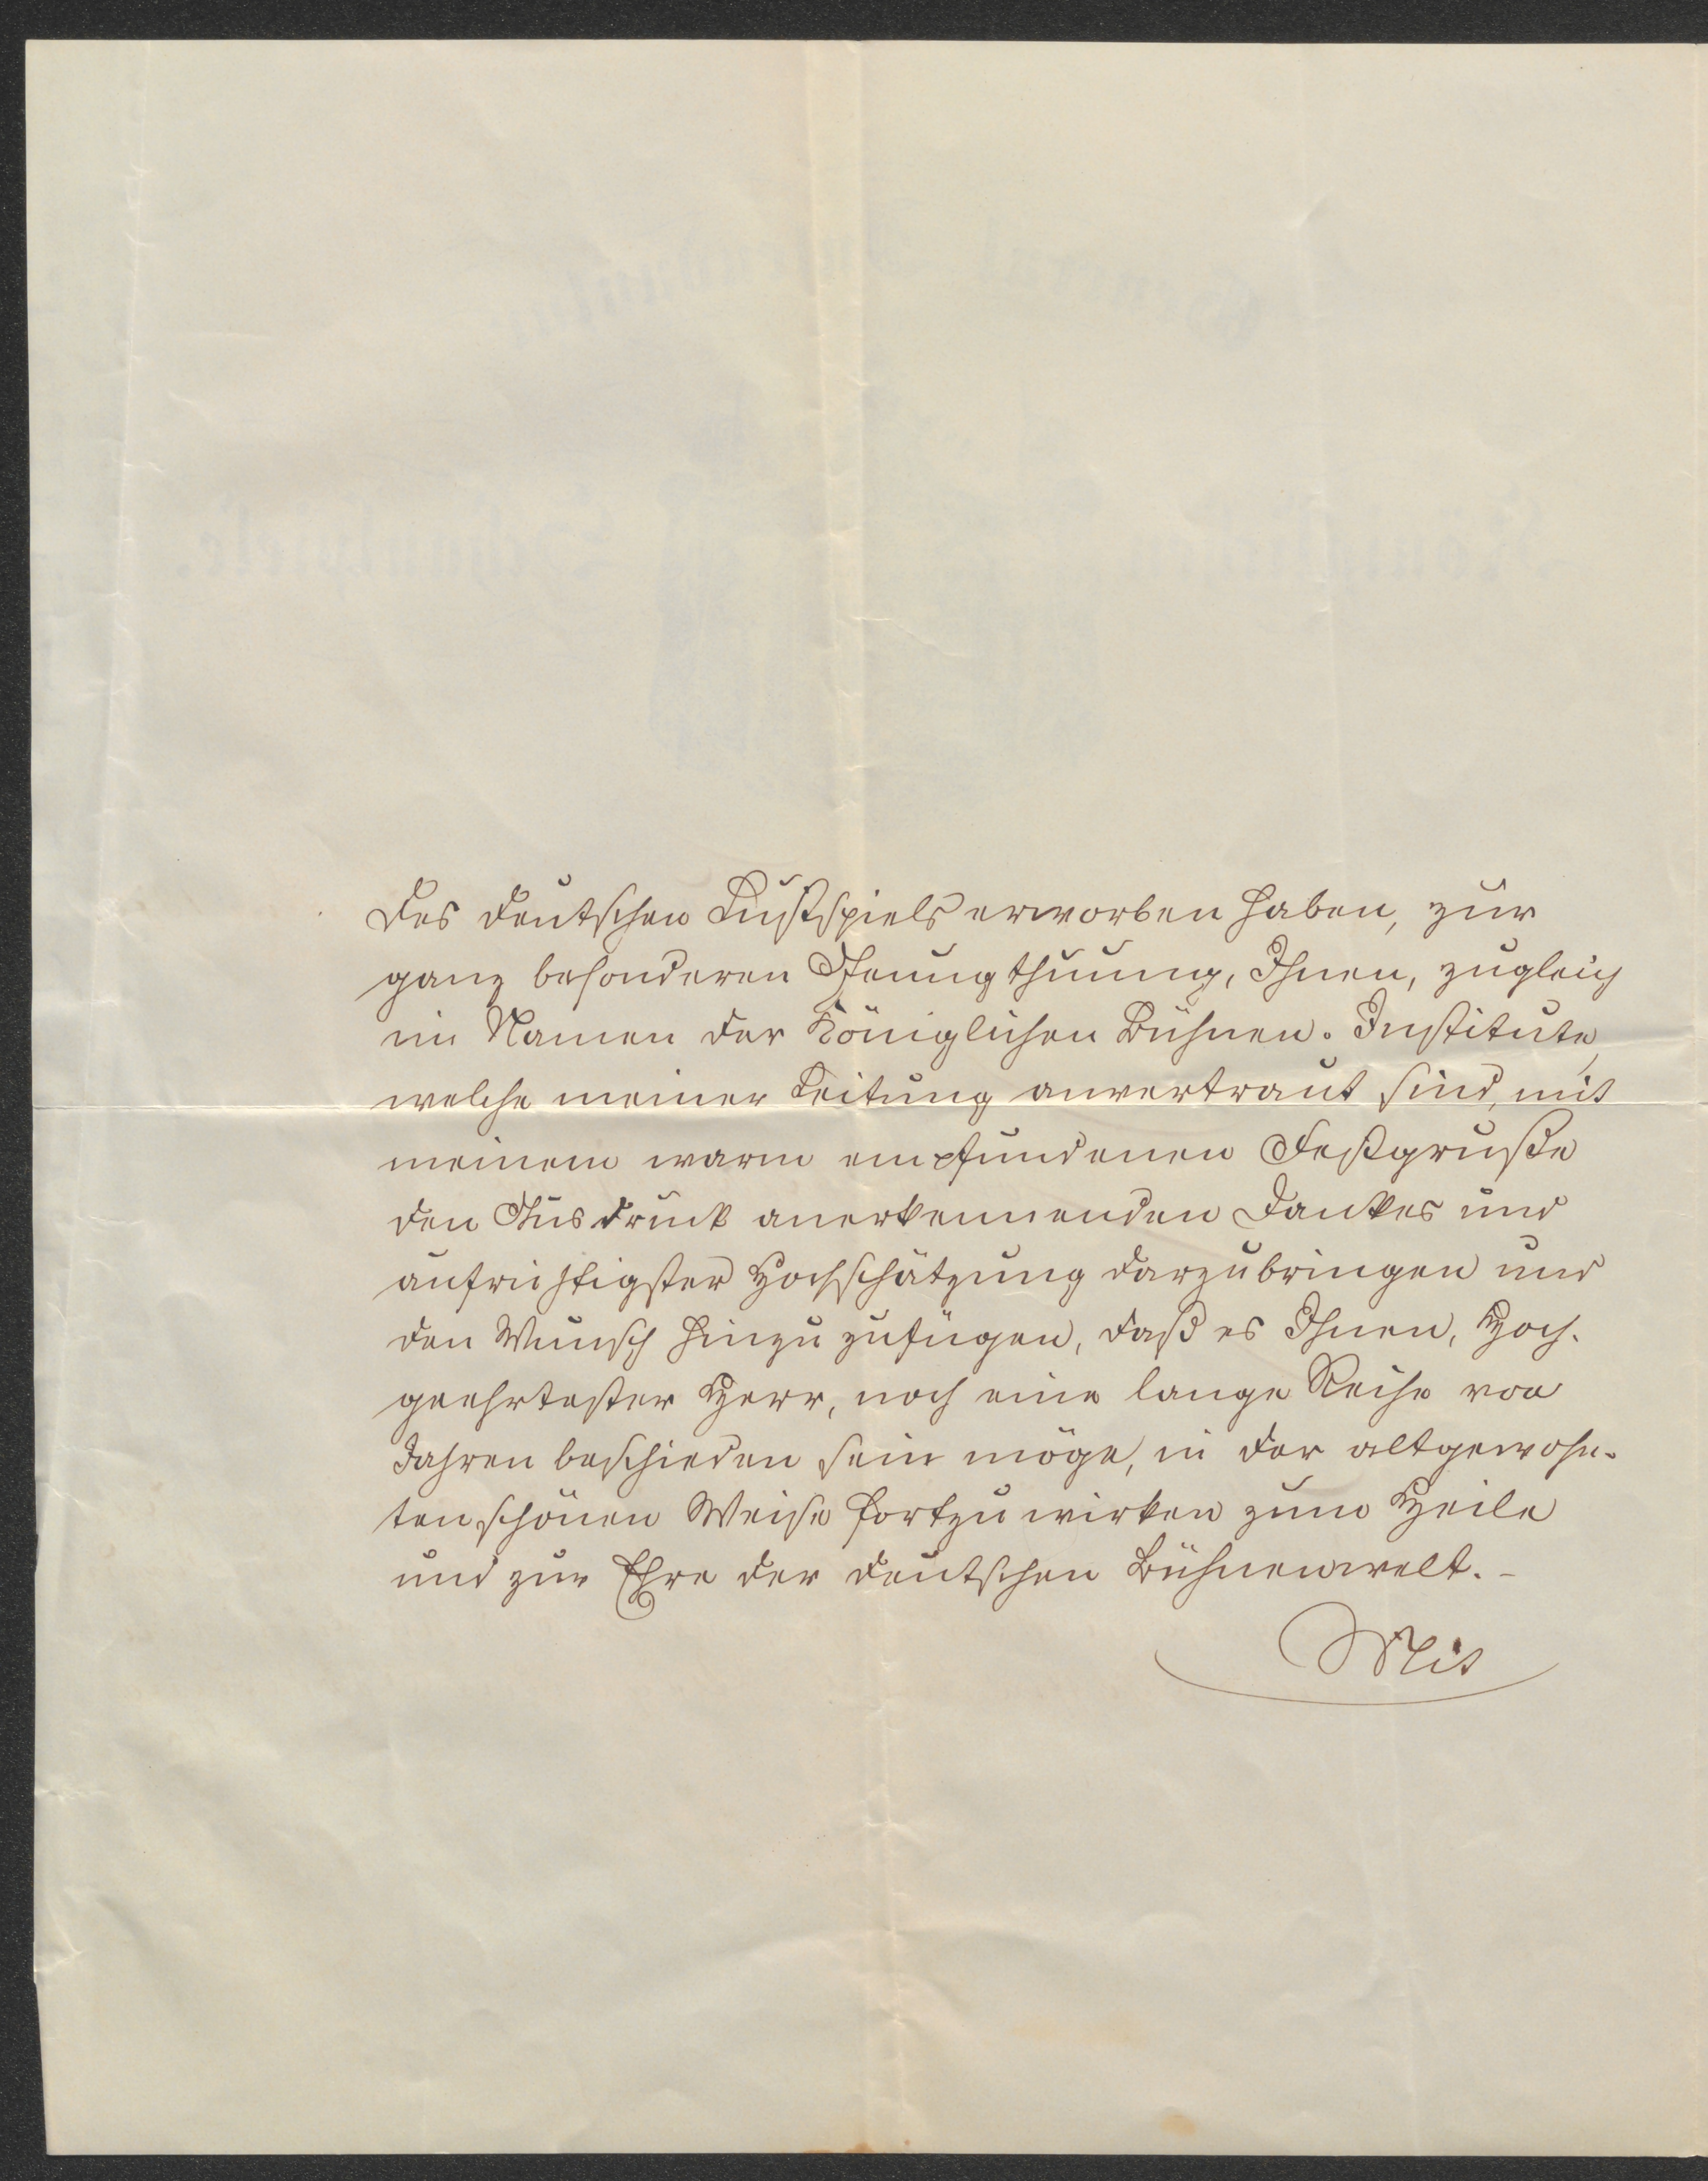 des deutschen Lustspiels erworben haben, zur
ganz besonderen Genugthuung, Ihnen, zugleich
im Namen der Königlichen Bühnen-Institute,
welche meiner Leitung anvertraut sind, mit
meinem warm empfundenen Festgruße
den Ausdruck anerkennenden Dankes und
aufrichtigster Hochschätzung darzubringen und
den Wunsch hinzuzufügen, daß es Ihnen, Hoch-
geehrtester Herr, noch eine lange Reihe von
Jahren beschieden sein möge, in der altgewohn-
ten schönen Weise fortzuwirken zum Heile
und zur Ehre der deutschen Bühnenwelt. -
Mit